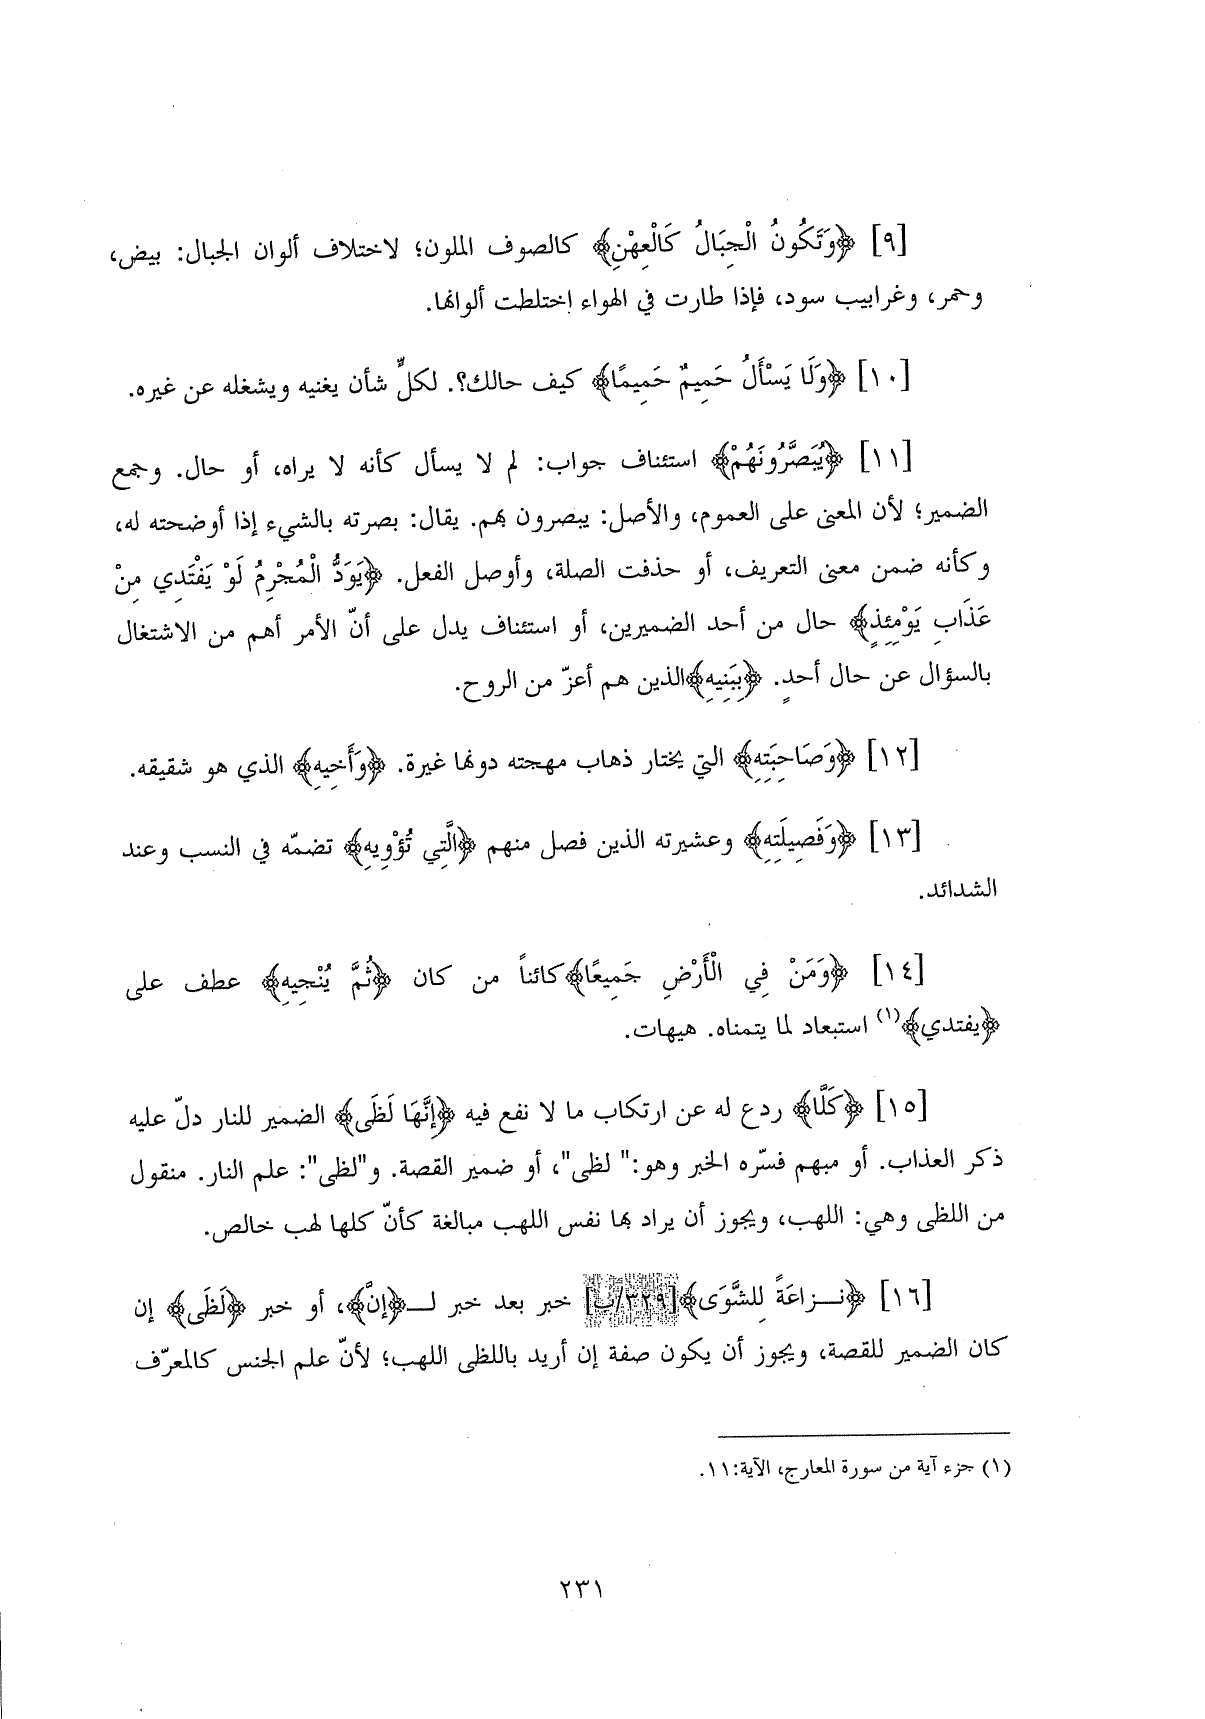 [٩] ﴿وَتَكُونُ الْجِبَالُ كَالْعِهْنِ﴾ كالصوف الملون؛ لاختلاف ألوان الجبال: بيض،
وحمر، وغرابيب سود، فإذا طارت في الهواء اختلطت ألوانها.
[١٠] ﴿وَلَا يَسْأَلُ حَمِيمٌ حَمِيمًا﴾ كيف حالك؟. لكلٍّ شأن يغنيه ويشغله عن غيره.
[١١] ﴿يُبَصَّرُونَهُمْ﴾ استئناف جواب: لم لا يسأل كأنه لا يراه، أو حال. وجمع
الضمير؛ لأن المعنى على العموم، والأصل: يبصرون بهم. يقال: بصرته بالشيء إذا أوضحته له،
وكأنه ضمن معنى التعريف، أو حذفت الصلة، وأوصل الفعل. ﴿يَوَدُّ الْمُجْرِمُ لَوْ يَفْتَدِي مِنْ
عَذَابِ يَوْمِئِذٍ﴾ حال من أحد الضميرين، أو استئناف يدل على أنّ الأمر أهم من الاشتغال
بالسؤال عن حال أحدٍ. ﴿بِبَنِيهِ﴾الذين هم أعزّ من الروح.
[١٢] ﴿وَصَاحِبَتِهِ﴾ التي يختار ذهاب مهجته دونها غيرة. ﴿وَأَخِيهِ﴾ الذي هو شقيقه.
[١٣] ﴿وَفَصِيلَتِهِ﴾ وعشيرته الذين فصل منهم ﴿الَّتِي تُؤْوِيهِ﴾ تضمّه في النسب وعند
الشدائد.
[١٤] ﴿وَمَنْ فِي الْأَرْضِ جَمِيعًا﴾كائناً من كان ﴿ثُمَّ يُنْجِيهِ﴾ عطف على
﴿يفتدي﴾(١) استبعاد لما يتمناه. هيهات.
[١٥] ﴿كَلَّا﴾ ردع له عن ارتكاب ما لا نفع فيه ﴿إِنَّهَا لَظَى﴾ الضمير للنار دلّ عليه
ذكر العذاب. أو مبهم فسّره الخبر وهو:" لظى"، أو ضمير القصة. و"لظى": علم النار. منقول
من اللظى وهي: اللهب، ويجوز أن يراد بها نفس اللهب مبالغة كأنّ كلها لهب خالص.
[١٦] ﴿نـزاعَةً لِلشَّوَى﴾[٣٢٩/ب] خبر بعد خبر لـ﴿إنَّ﴾، أو خبر ﴿لَظَى﴾ إن
كان الضمير للقصة، ويجوز أن يكون صفة إن أريد باللظى اللهب؛ لأنّ علم الجنس كالمعرّف
(١) جزء آية من سورة المعارج، الآية:١١.
٢٣١